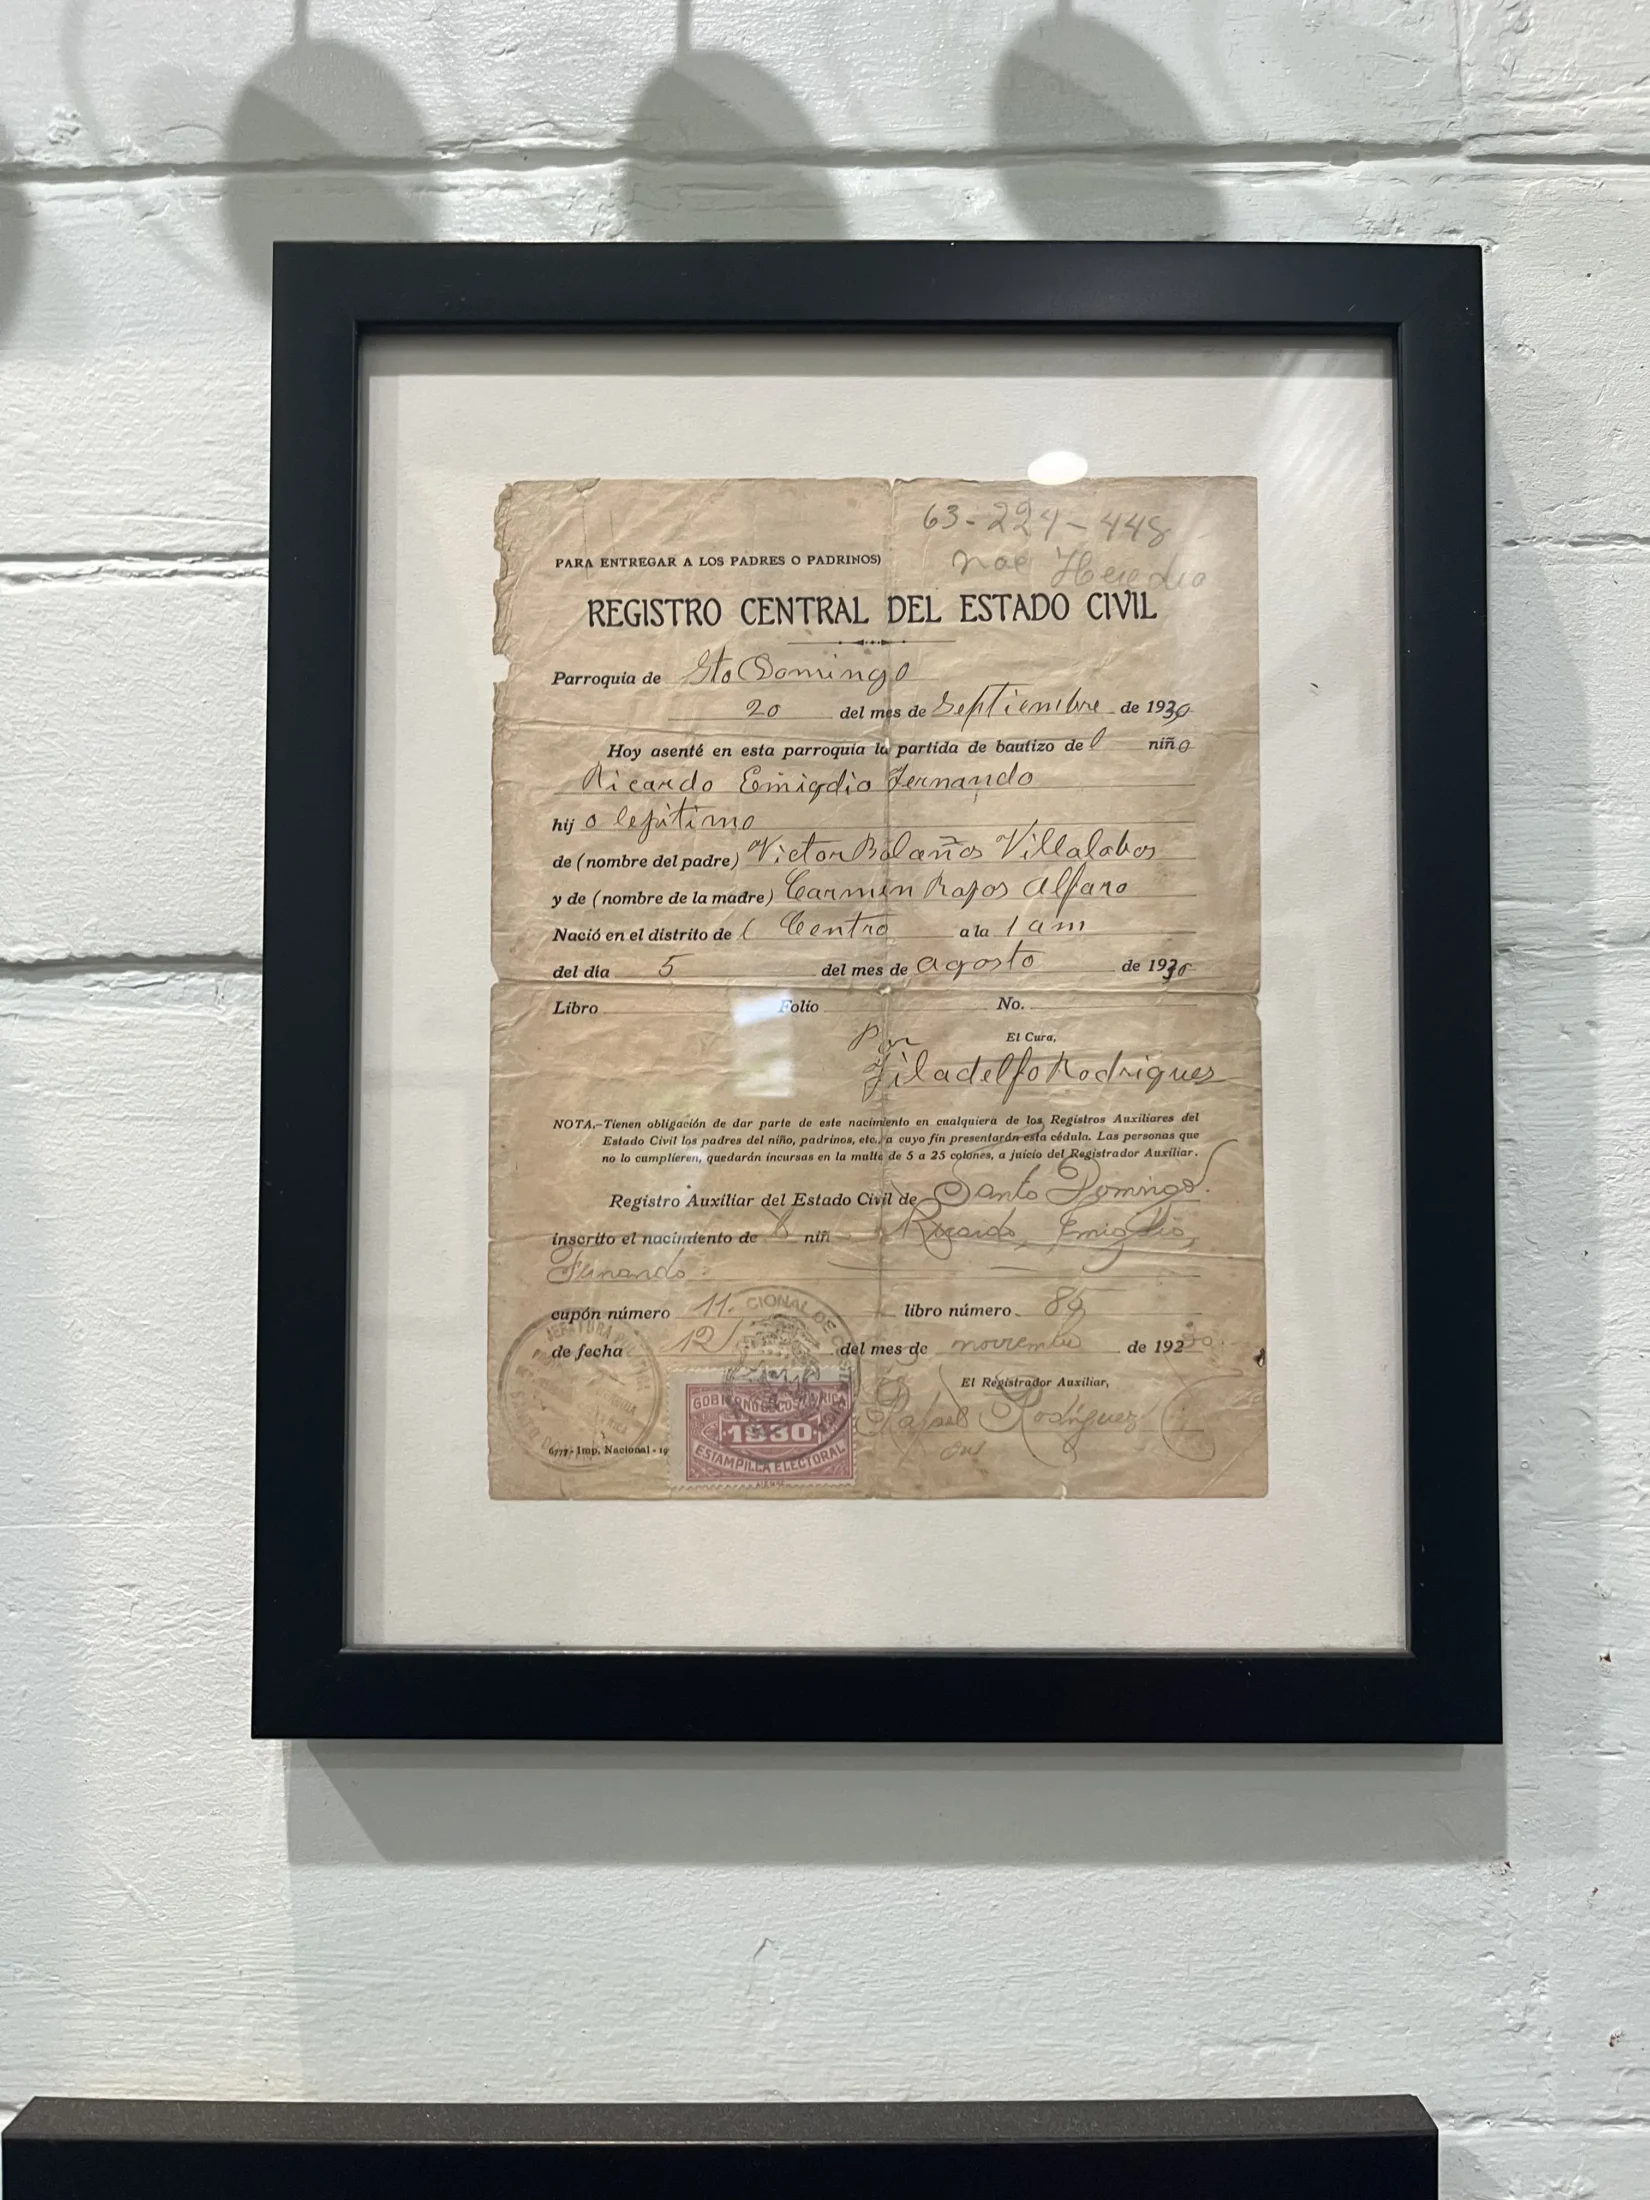 63-224-448
Noe Heredia
PARA ENTREGAR A LOS PADRES O PADRINOS)
REGISTRO CENTRAL DEL ESTADO CIVIL
Parroquia de Sto Domingo
20 del mes de Septiembre de 1930
Hoy asenté en esta parroquia la partida de bautizo del niño
Ricardo Emigdio Fernando
hijo lejitimo
de (nombre del padre) Victor Bolaños Villalobos
y de (nombre de la madre) Carmen Rojos Alfaro
Nació en el distrito de l Centro a la 1 am
del día 5 del mes de agosto de 1930
Libro Folio No.
Por El Cura,
Filadelfo Rodrigues
NOTA.-Tienen obligación de dar parte de este nacimiento en cualquiera de los Registros Auxiliares del
Estado Civil los padres del niño, padrinos, etc., a cuyo fin presentarán esta cédula. Las personas que
no lo cumplieren, quedarán incursas en la multa de 5 a 25 colones, a juicio del Registrador Auxiliar.
Registro Auxiliar del Estado Civil de Santo Domingo.
inscrito el nacimiento de niñ Ricardo, Emigdio,
Fernando.
cupón número 11. libro número 85
de fecha 12 del mes de noviembre de 192
El Registrador Auxiliar,
Rafael Rodríguez
6777-Imp. Nacional-19
GOBIERNO DE COSTA RICA
1930
ESTAMPILLA ELECTORAL